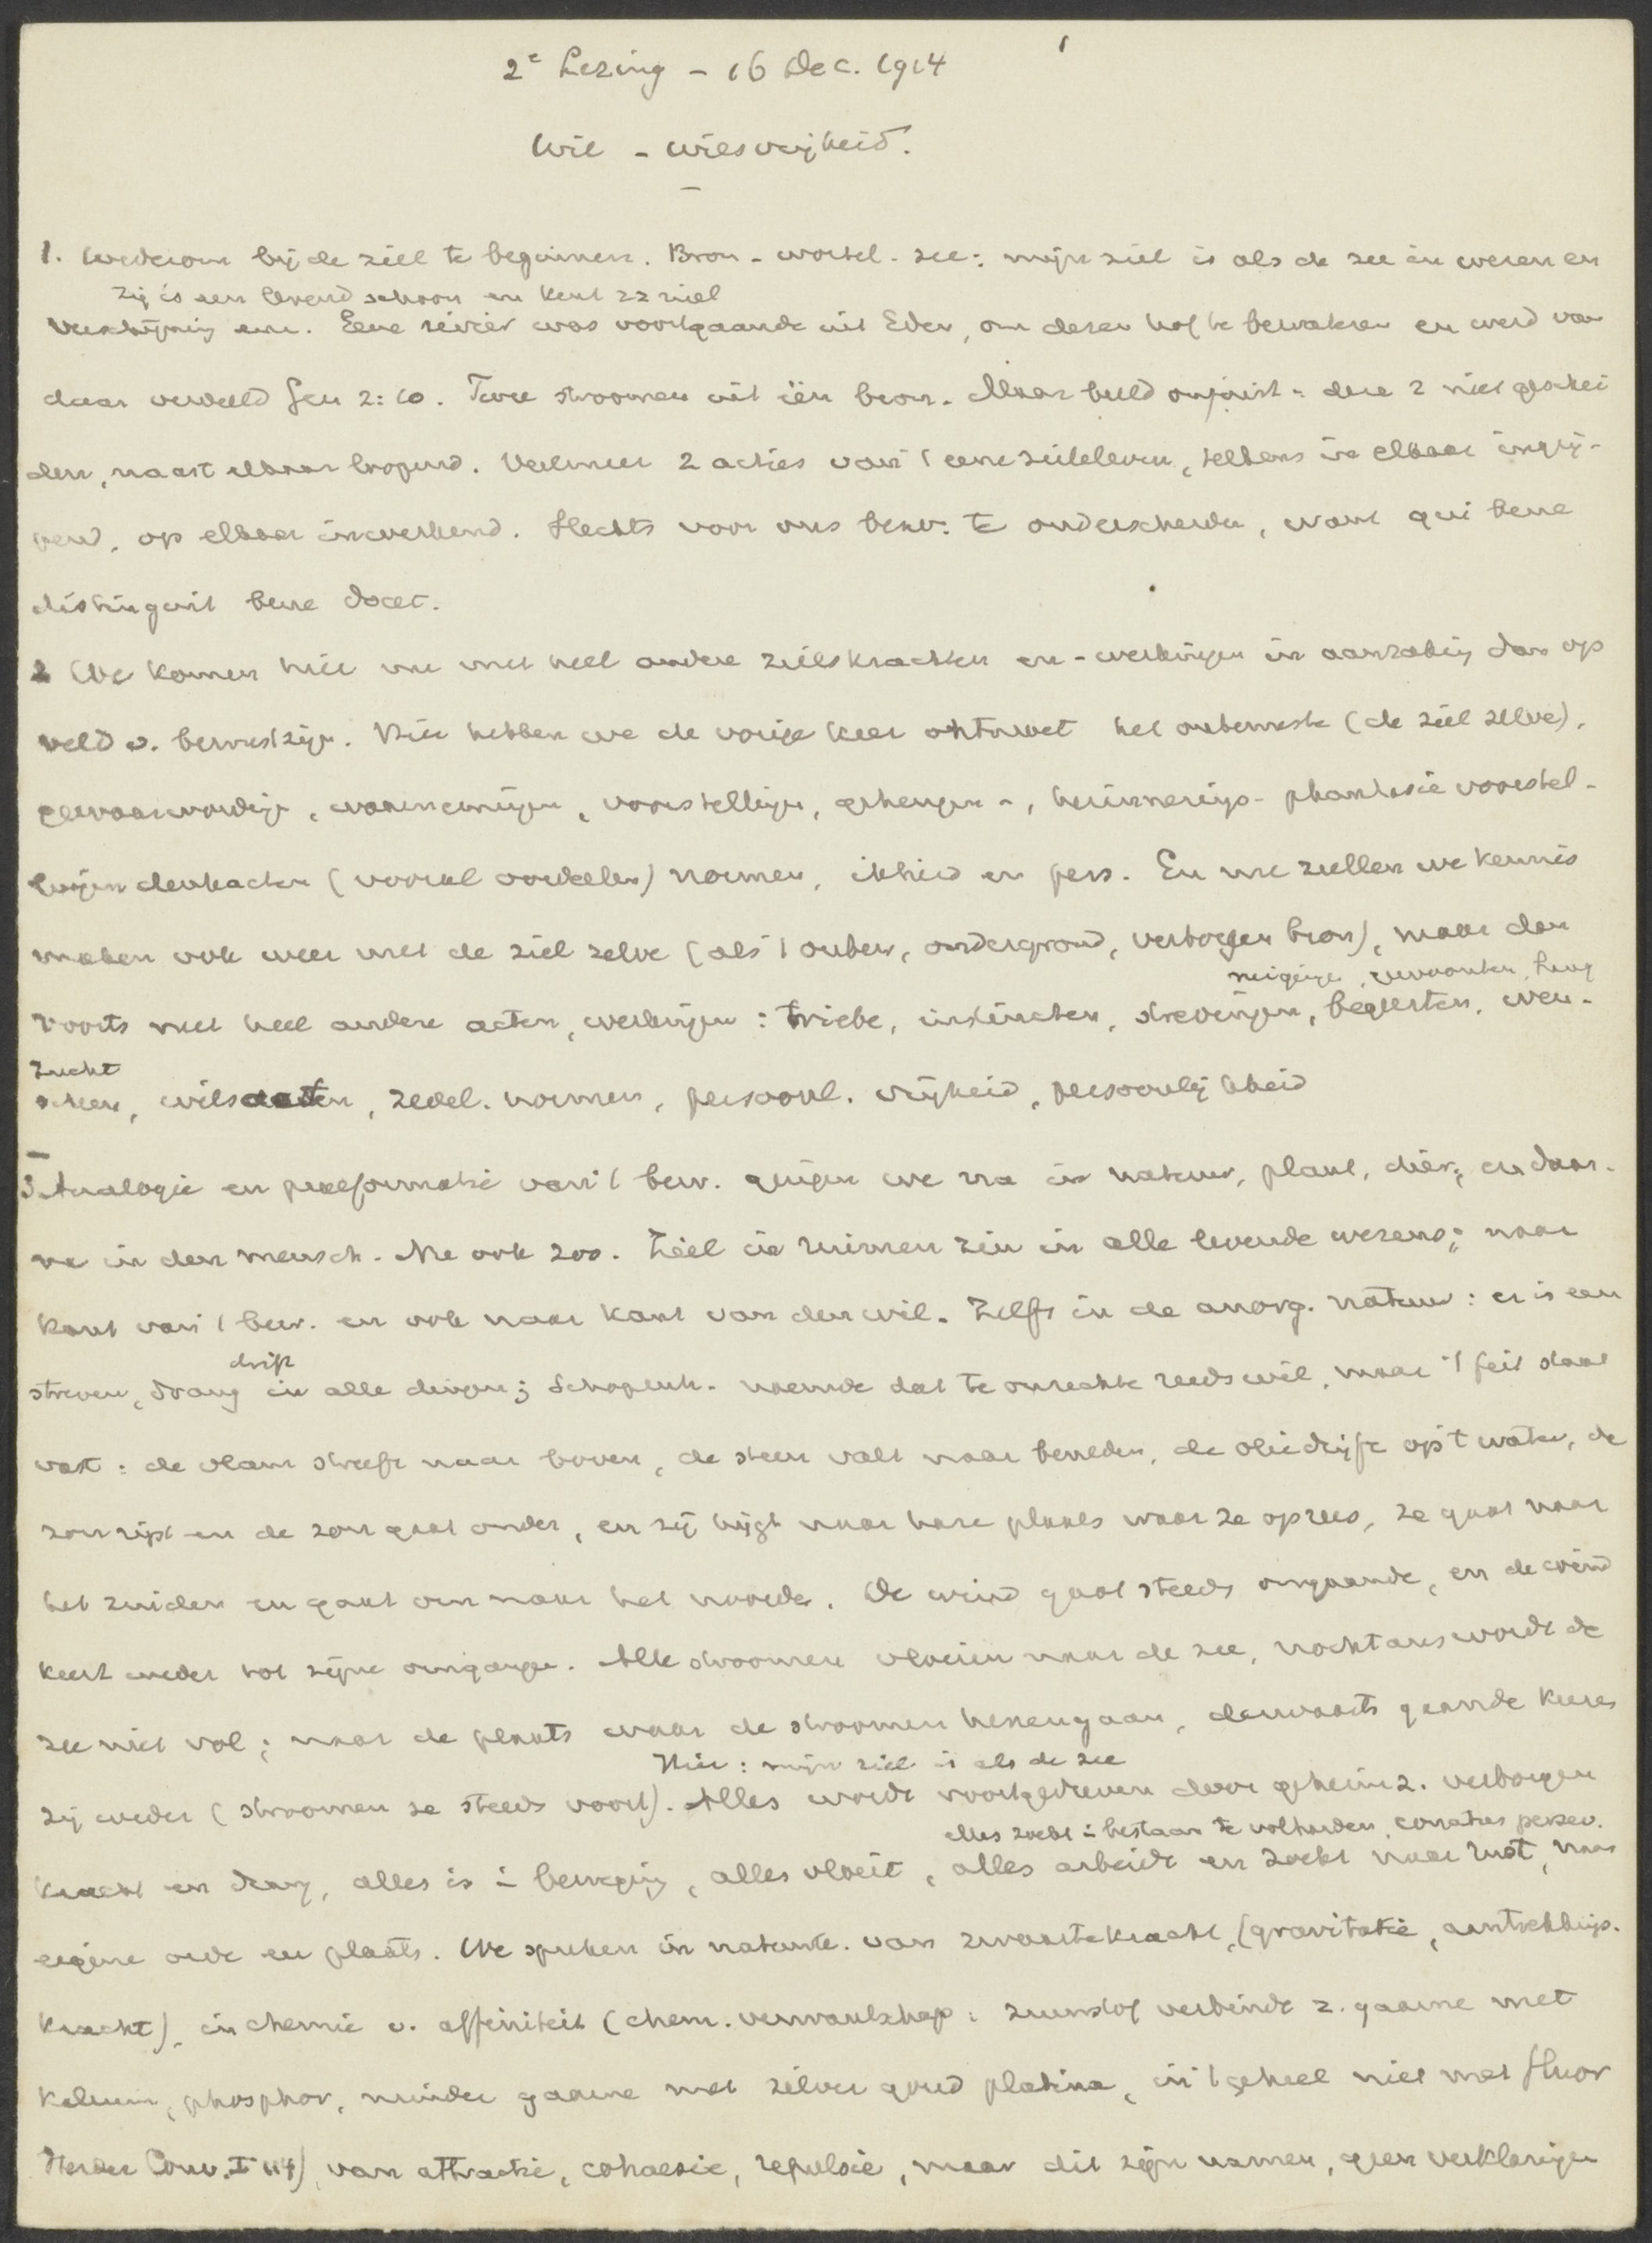 1
2e Lezing - 16 Dec. 1914
Wil - wilsvrijheid.
1. Wederom bij de ziel te beginnen. Bron - wortel - zee: mijn ziel is als de zee in wezen en
zij is een levend schoon en kent zz niet
verschijning enz. Eene rivier was voortgaande uit Eden, om dezen hof te bewateren en werd van
daar verdeeld Gen 2:10. Twee stroomen uit één bron. Maar beeld onjuist: deze 2 niet geschei
den, naast elkaar loopend. Veelmeer 2 acties van 't eene zieleleven, telkens in elkaar ingrij-
pend, op elkaar inwerkend. Slechts voor ons bew: te onderscheiden, want qui bene
distinguit bene docet.
2 We komen hier nu met heel andere zielskrachten en -werkingen in aanraking dan op
veld v. bewustzijn. Hier hebben we de vorige keer ontmoet het onbewuste (de ziel zelve),
gewaarwording, waarnemingen, voorstellingen, geheugen -, herinnerings- phantasie voorstel-
lingen denkacten (vooral oordeelen) normen, ikheid en pers. En nu zullen we kennis
maken ook weer met de ziel zelve (als 't onbew, ondergrond, verborgen bron), maar dan
neigingen, gewoonten, hang
voorts met heel andere acten, werkingen: triebe, instincten, strevingen, begeerten, wen-
zucht
schen, wilsdaden, zedel. normen, persoonl. vrijheid, persoonlijkheid
3. Analogie en praeformatie van 't bew. gingen we na in natuur, plant, dier, en daar-
na in den mensch. Nu ook zoo. Ziel in ruimen zin in alle levende wezens; naar
kant van 't bew. en ook naar kant van den wil. Zelfs in de anorg. natuur: er is een
drift
streven, drang in alle dingen; Schopenh. noemde dat te onrechte reeds wil, maar 't feit staat
vast: de vlam streeft naar boven, de steen valt naar beneden, de olie drijft op 't water, de
zon rijst en de zon gaat onder, en zij hijgt naar hare plaats waar ze oprees, ze gaat naar
het zuiden en gaat om naar het noorden. De wind gaat steeds omgaande, en de wind
keert weder tot zijne omgangen. Alle stroomen vloeien naar de zee, nochtans wordt de
zee niet vol; naar de plaats waar de stroomen henengaan, derwaarts gaande keeren
Hier: mijn ziel is als de zee
zij weder (stroomen ze steeds voort). Alles wordt voortgedreven door geheimz. verborgen
alles zoekt in bestaan te volharden, conatus persev.
kracht en drang, alles is in beweging, alles vloeit, alles arbeidt en zoekt naar rust, naar
eigene orde en plaats. We spreken in natuurk. van zwaartekracht, (gravitatie, aantrekkings-
kracht), in chemie v. affiniteit (chem. verwantschap: zuurstof verbindt z. gaarne met
kalium, phosphor, minder gaarne met zilver goud platina, in 't geheel niet met fluor
Herder Conv. I 114), van attractie, cohaesie, repulsie, maar dit zijn namen, geen verklaringen